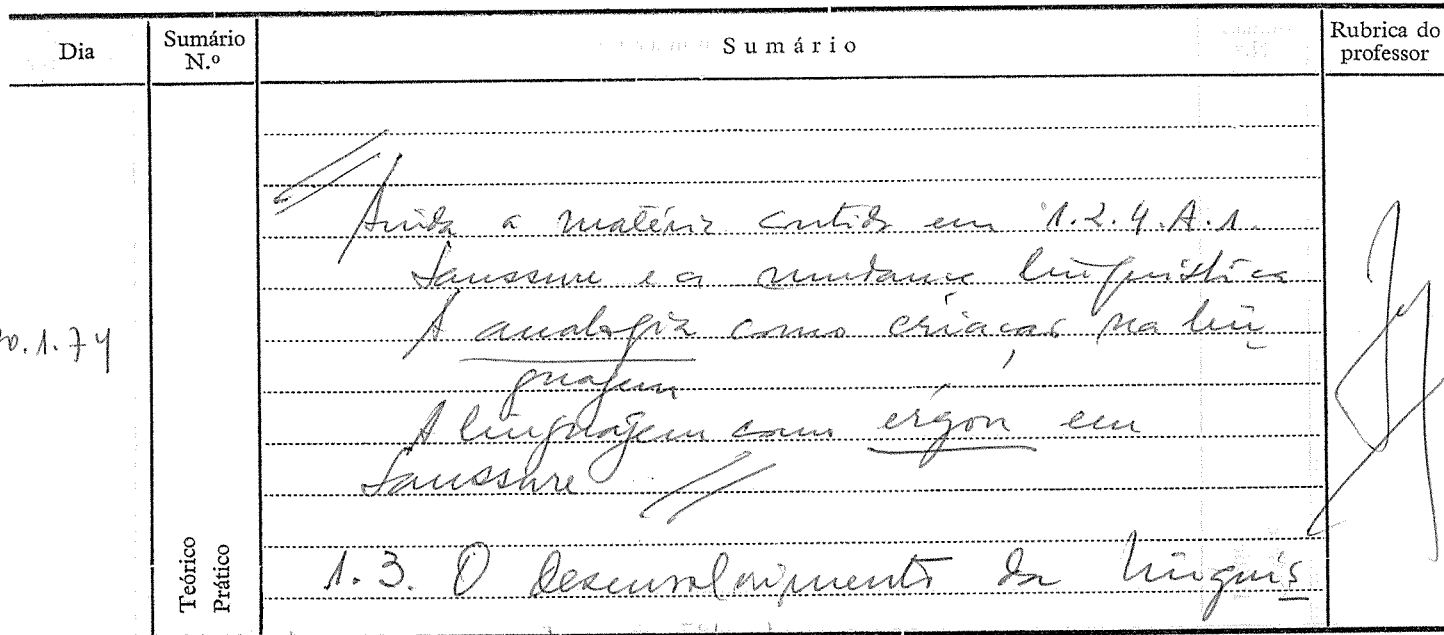 Dia
Sumário N.º
Sumário
Rubrica do professor
Ainda a matéria contida em 1.2.4.A.1.
Saussure e a mudança linguística
A analogia como criação na lin
guagem
A linguagem como érgon em
Saussure
0.1.74
Teórico
Prático
1.3. O desenvolvimento da linguís